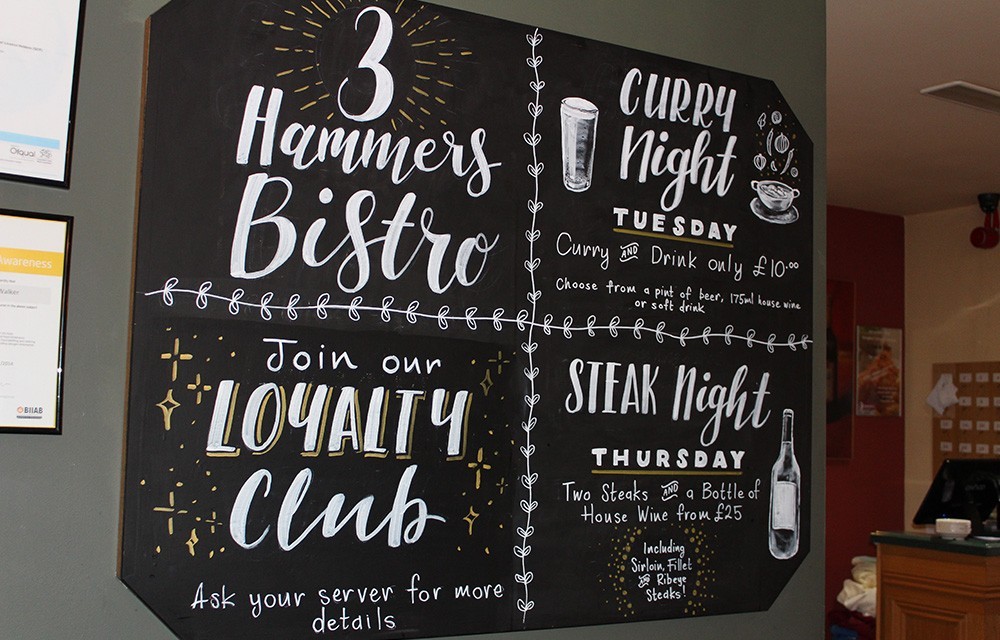 3
Hammers
Bistro
CURRY
Night
TUESDAY
Curry AND Drink only £10.00
Choose from a pint of beer, 175ml house wine
or soft drink
Join our
LOYALTY
Club
Ask your server for more
details
STEAK Night
THURSDAY
Two Steaks AND a Bottle of
House Wine from £25
Including
Sirloin, Fillet
AND Ribeye
Steaks!
Ofqual
Awareness
Walker
BIIAB